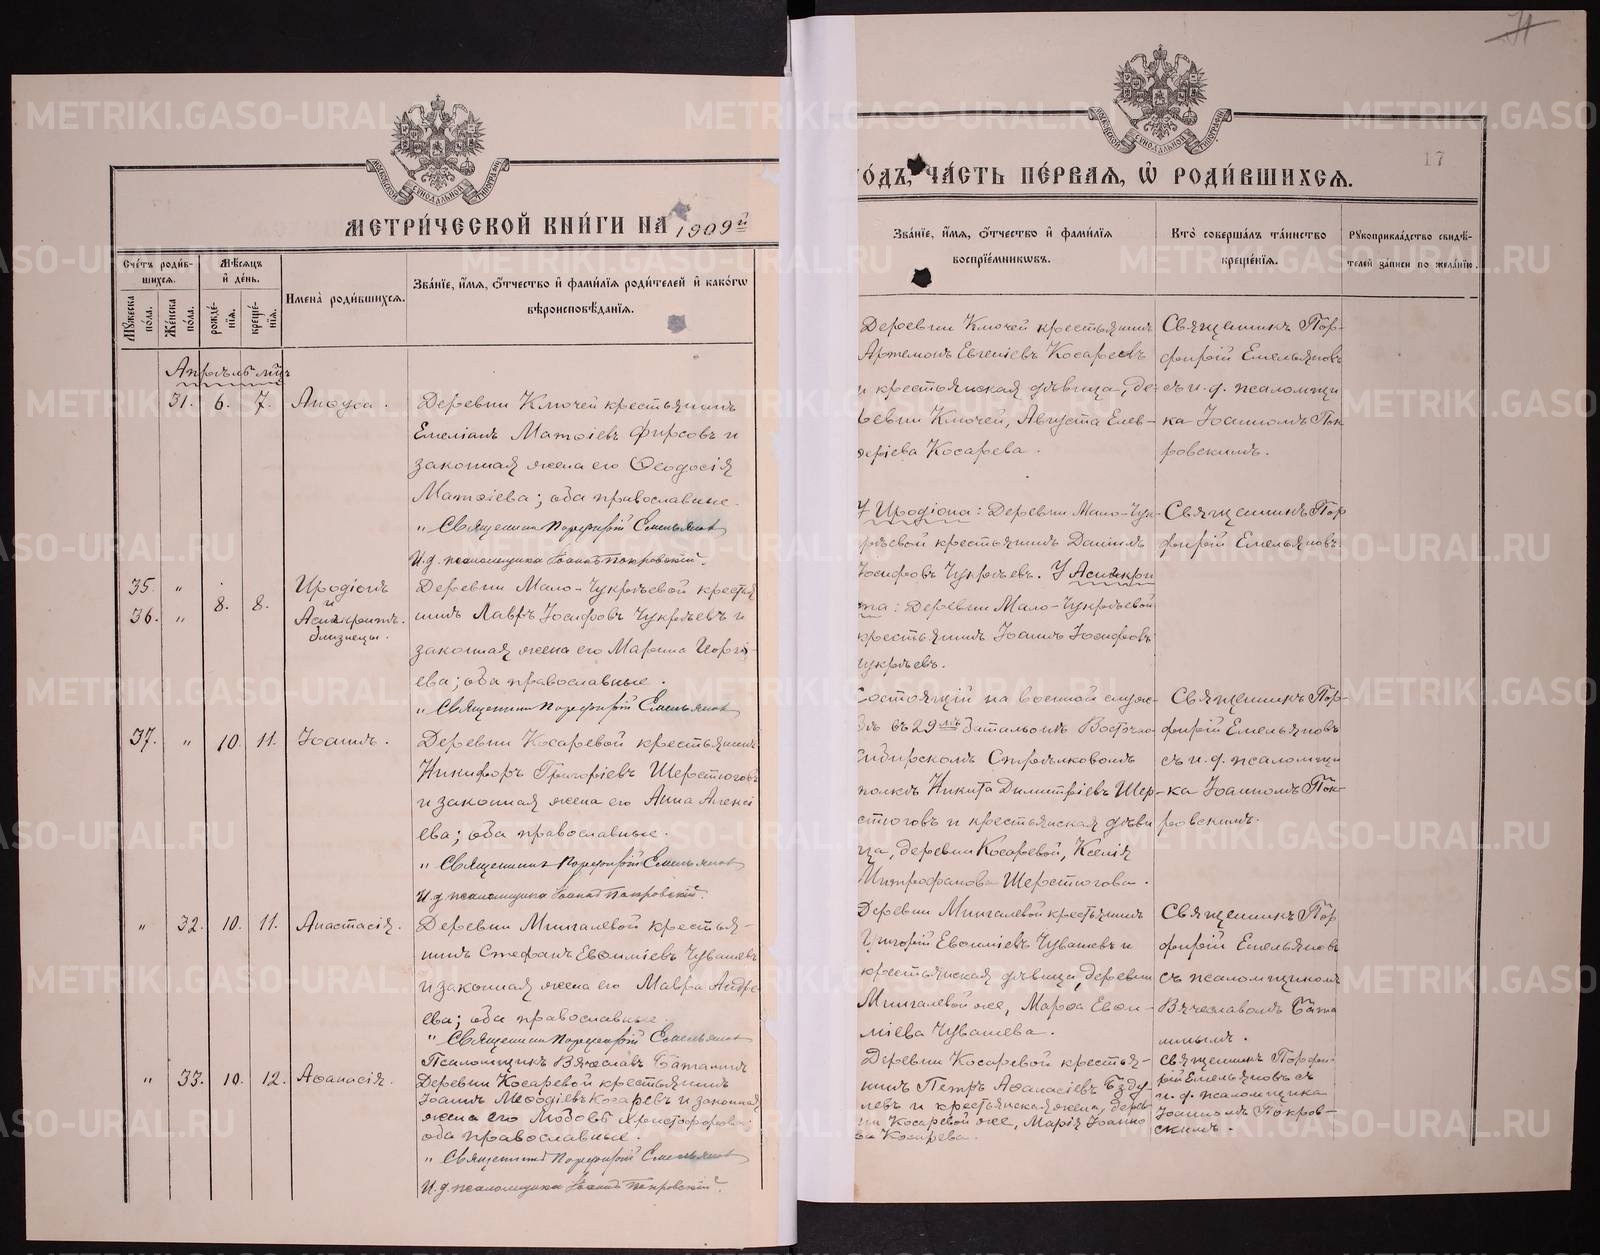 МЕТРИ́ЧЕСКОЙ КНИ́ГИ НА 1909й
Сче́тъ роди́в-
шихся.
Мѣ́сяцъ
и҆ де́нь.
Му́жеска
по́ла.
Же́нска
по́ла.
рожде́-
нїѧ.
креще́-
нїѧ.
Имена̀ роди́вшихсѧ.
Зва́нїе, и҆́мѧ, ѻ҆́тчество и҆ фами́лїѧ роди́телей и҆ како́гѡ
вѣроисповѣ́данїѧ.
Апрѣль мѣц
31. 6. 7. Анѳуса.
Деревни Ключей крестьянинъ
Емеліанъ Матѳіевъ Фирсовъ и
законная жена его Ѳеодосія
Матѳіева; оба православные.
„ Священникъ Порфирій Емельянов
И.д. псаломщика Іоаннъ Покровскій.
35. „
36. „
8. 8.
Иродіонъ
и
Асигкритъ.
близнецы.
Деревни Мало-Чукрѣевой кресть
нинъ Лавръ Іосифовъ Чукрѣевъ и
законная жена его Марина Георгі-
ева; оба православные.
„ Священникъ Порфирій Емельянов
37. „ 10. 11. Іоаннъ.
Деревни Косаревой крестьянинъ
Никифоръ Григоріевъ Шерстюговъ
и законная жена его Анна Алексі
ева; оба православные.
„ Священникъ Порфирій Емельянов
И.д. псаломщика Іоаннъ Покровскій.
„ 32. 10. 11. Анастасія.
Деревни Мингалевой крестья-
нинъ Стефанъ Евѳиміевъ Чувашевъ
и законная жена его Мавра Андре
ева; оба православные.
„ Священникъ Порфирій Емельянов
Псаломщикъ Вячеславъ Баталинъ
„ 33. 10. 12. Аѳанасія.
Деревни Косаревой крестьянинъ
Іоаннъ Меѳодіевъ Косаревъ и законная
жена его Любовь Христофорова;
оба православные.
„ Священникъ Порфирій Емельянов
И.д. псаломщика Іоаннъ Покровскій.
17
ГО́ДЪ, ЧА́СТЬ ПЕ́РВАЯ, Ѡ҆ РОДИ́ВШИХСѦ.
Зва́нїе, и҆́мѧ, ѻ҆́тчество и҆ фами́лїѧ
воспрїе́мникѡвъ.
Кто̀ соверша́лъ та́инство
креще́нїѧ.
Рꙋкоприкла́дство свидѣ́-
телей за́писи по жела́нїю.
Деревни Ключей крестьянинъ
Артемонъ Евгеніевъ Косаревъ
и крестьянская дѣвица, де-
ревни Ключей, Августа Елев-
ѳеріева Косарева.
Священникъ Пор-
фирій Емельяновъ
съ и.д. псаломщи
ка Іоанномъ Пок
ровскимъ.
У Иродіона: Деревни Мало-Чук-
рѣевой крестьянинъ Даніилъ
Іосифовъ Чукрѣевъ. У Асигкри
та: Деревни Мало-Чукрѣевой
крестьянинъ Іоаннъ Іосифовъ
Чукрѣевъ.
Священникъ Пор
фирій Емельяновъ.
Состоящій на военной служ-
бѣ въ 29мъ Восточно
Сибирскомъ Стрѣлковомъ
полку Никита Димитріевъ Шер-
стюговъ и крестьянская дѣви
ца, деревни Косаревой, Ксенія
Митрофанова Шерстюгова.
Священникъ Пор-
фирій Емельяновъ
съ и.д. псаломщи
ка Іоанномъ Пок-
ровскимъ.
Деревни Мингалевой крестьянинъ
Григорій Евѳиміевъ Чувашевъ и
крестьянская дѣвица, деревни
Мингалевой же, Марѳа Евѳи-
міева Чувашева.
Священникъ Пор
фирій Емельяновъ
съ псаломщикомъ
Вячеславомъ Бата
линымъ.
Деревни Косаревой крестья-
нинъ Петръ Аѳанасіевъ Бзду
левъ и крестьянская жена, дерев
ни Косаревой же, Марія Іоанно
ва Косарева.
Священникъ Порфи-
рій Емельяновъ съ
и.д. псаломщика
Іоанномъ Покров-
скимъ.
METRIKI.GASO-URAL.RU